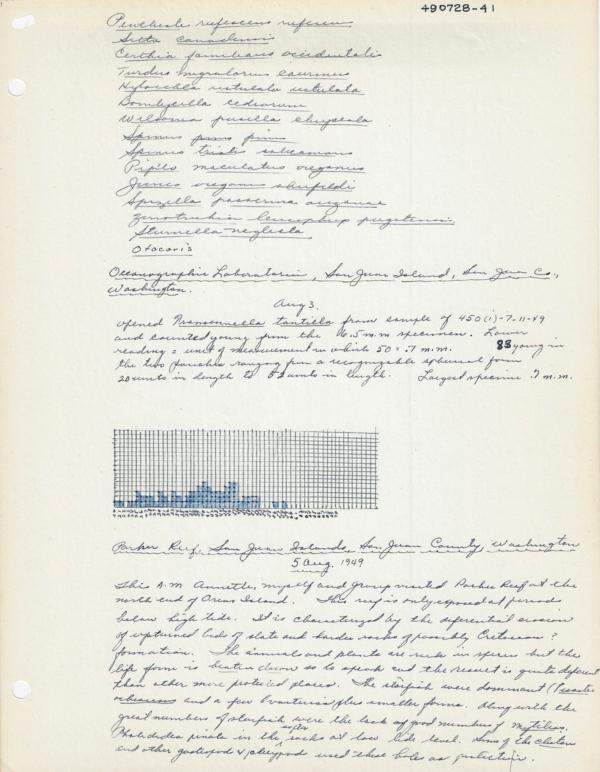 490728-41
Penthestes rufescens rufescens
Sitta canadensis
Certhia familiaris occidentalis
Turdus migratorius caurinus
Hylocichla ustulata ustulata
Bombycilla cedrorum
Wilsonia pusilla
Spinus pinus pinus
Spinus tristis salicamans
Pipilo maculatus oregonus
Junco oreganus shufeldti
Spizella passerina arizonae
Zonotrichia leucophrys pugetensis
Sturnella neglecta
Otocoris
Oceanographic Laboratories, San Juan Island, San Juan Co.,
Washington.
Aug 3.
opened Transennella tantilla from sample of 450(1)-7-11-49
and counted young from the 6.5 m.m specimen. Lower
reading = unit of measurement in which 50 = .7 m.m. 83 young in
the two pouches ranging from a recognizable form
20 units in length to 52 units in length. Largest specimen .7 m.m.
Parker Reef, San Juan Islands, San Juan County, Washington
5 Aug. 1949
This A.M Annette, myself and group visited Parker Reef at the
north end of Orcas Island. This reef is only exposed at periods
below high tide. It is characterized by the diferential erosion
of upturned beds of slate and harder rocks of possibly Cretacean ?
formation. The animals and plants are rich in species but the
life form is beaten down so to speak and the result is quite different
than other more protected places. The starfish were dominant (Pisaster
ochraceus and a few plus smaller forms. Along with the
great numbers of starfish were the lack of good numbers of Mytilus.
Pholididea in the rocks at low tide level. Some of the chiton
and other gastropod & pelecypod used these holes as protection.